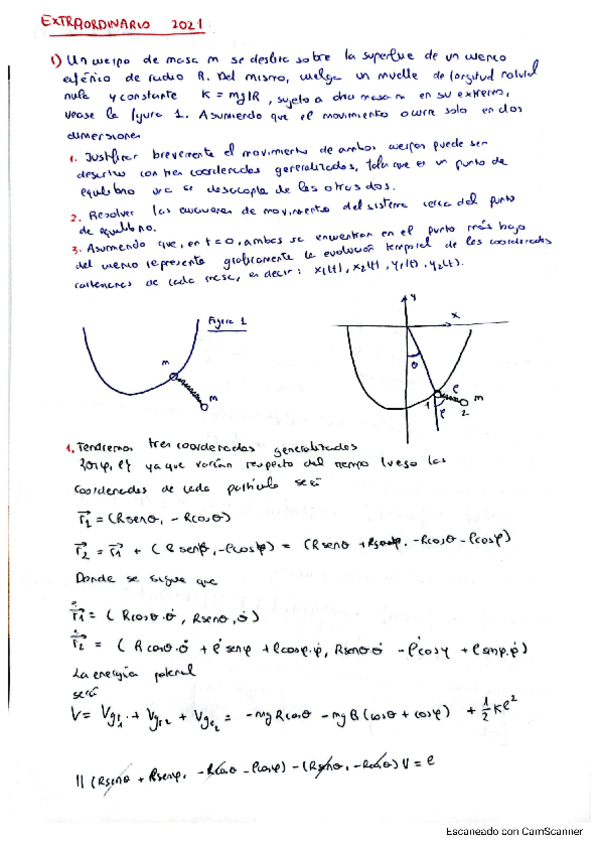 EXTRAORDINARIO 2021
1) Un cuerpo de masa m se desliza sobre la superficie de un cuenco
esférico de radio R. Del mismo, cuelga un muelle de longitud natural
nula y constante K = mg/R, sujeto a otra masa m en su extremo,
vease la figura 1. Asumiendo que el movimiento ocurre solo en dos
dimensiones
1. Justificar brevemente el movimiento de ambos cuerpos puede ser
descrito con tres coordenadas generalizadas, tales que en un punto de
equilibrio una se desacopla de las otras dos.
2. Resolver las ecuaciones de movimiento del sistema cerca del punto
de equilibrio.
3. Asumiendo que, en t=0, ambas se encuentran en el punto más bajo
del cuenco represente graficamente la evolución temporal de las coordenadas
cartesianas de cada masa, es decir: x1(t), x2(t), y1(t), y2(t).
Figura 1
m
m
y
x
θ
ρ
1
φ
m
2
1. Tendremos tres coordenadas generalizadas
{θ, φ, ρ} ya que varían respecto del tiempo luego las
coordenadas de cada partícula será
r⃗1 = (Rsenθ, -Rcosθ)
r⃗2 = r⃗1 + (ρsenφ, -ρcosφ) = (Rsenθ + ρsenφ, -Rcosθ - ρcosφ)
Donde se sigue que
ṙ⃗1 = (Rcosθ·θ̇, Rsenθ·θ̇)
ṙ⃗2 = (Rcosθ·θ̇ + ρ̇senφ + ρcosφ·φ̇, Rsenθ·θ̇ - ρ̇cosφ + ρsenφ·φ̇)
La energía potencial
será
V = Vg1 + Vg2 + Ve2 = -mgRcosθ - mgR(cosθ + cosφ) + 1/2 Kρ²
||(Rsenθ + Rsenφ, -Rcosθ - ρcosφ) - (Rsenθ, -Rcosθ)|| = ρ
Escaneado con CamScanner